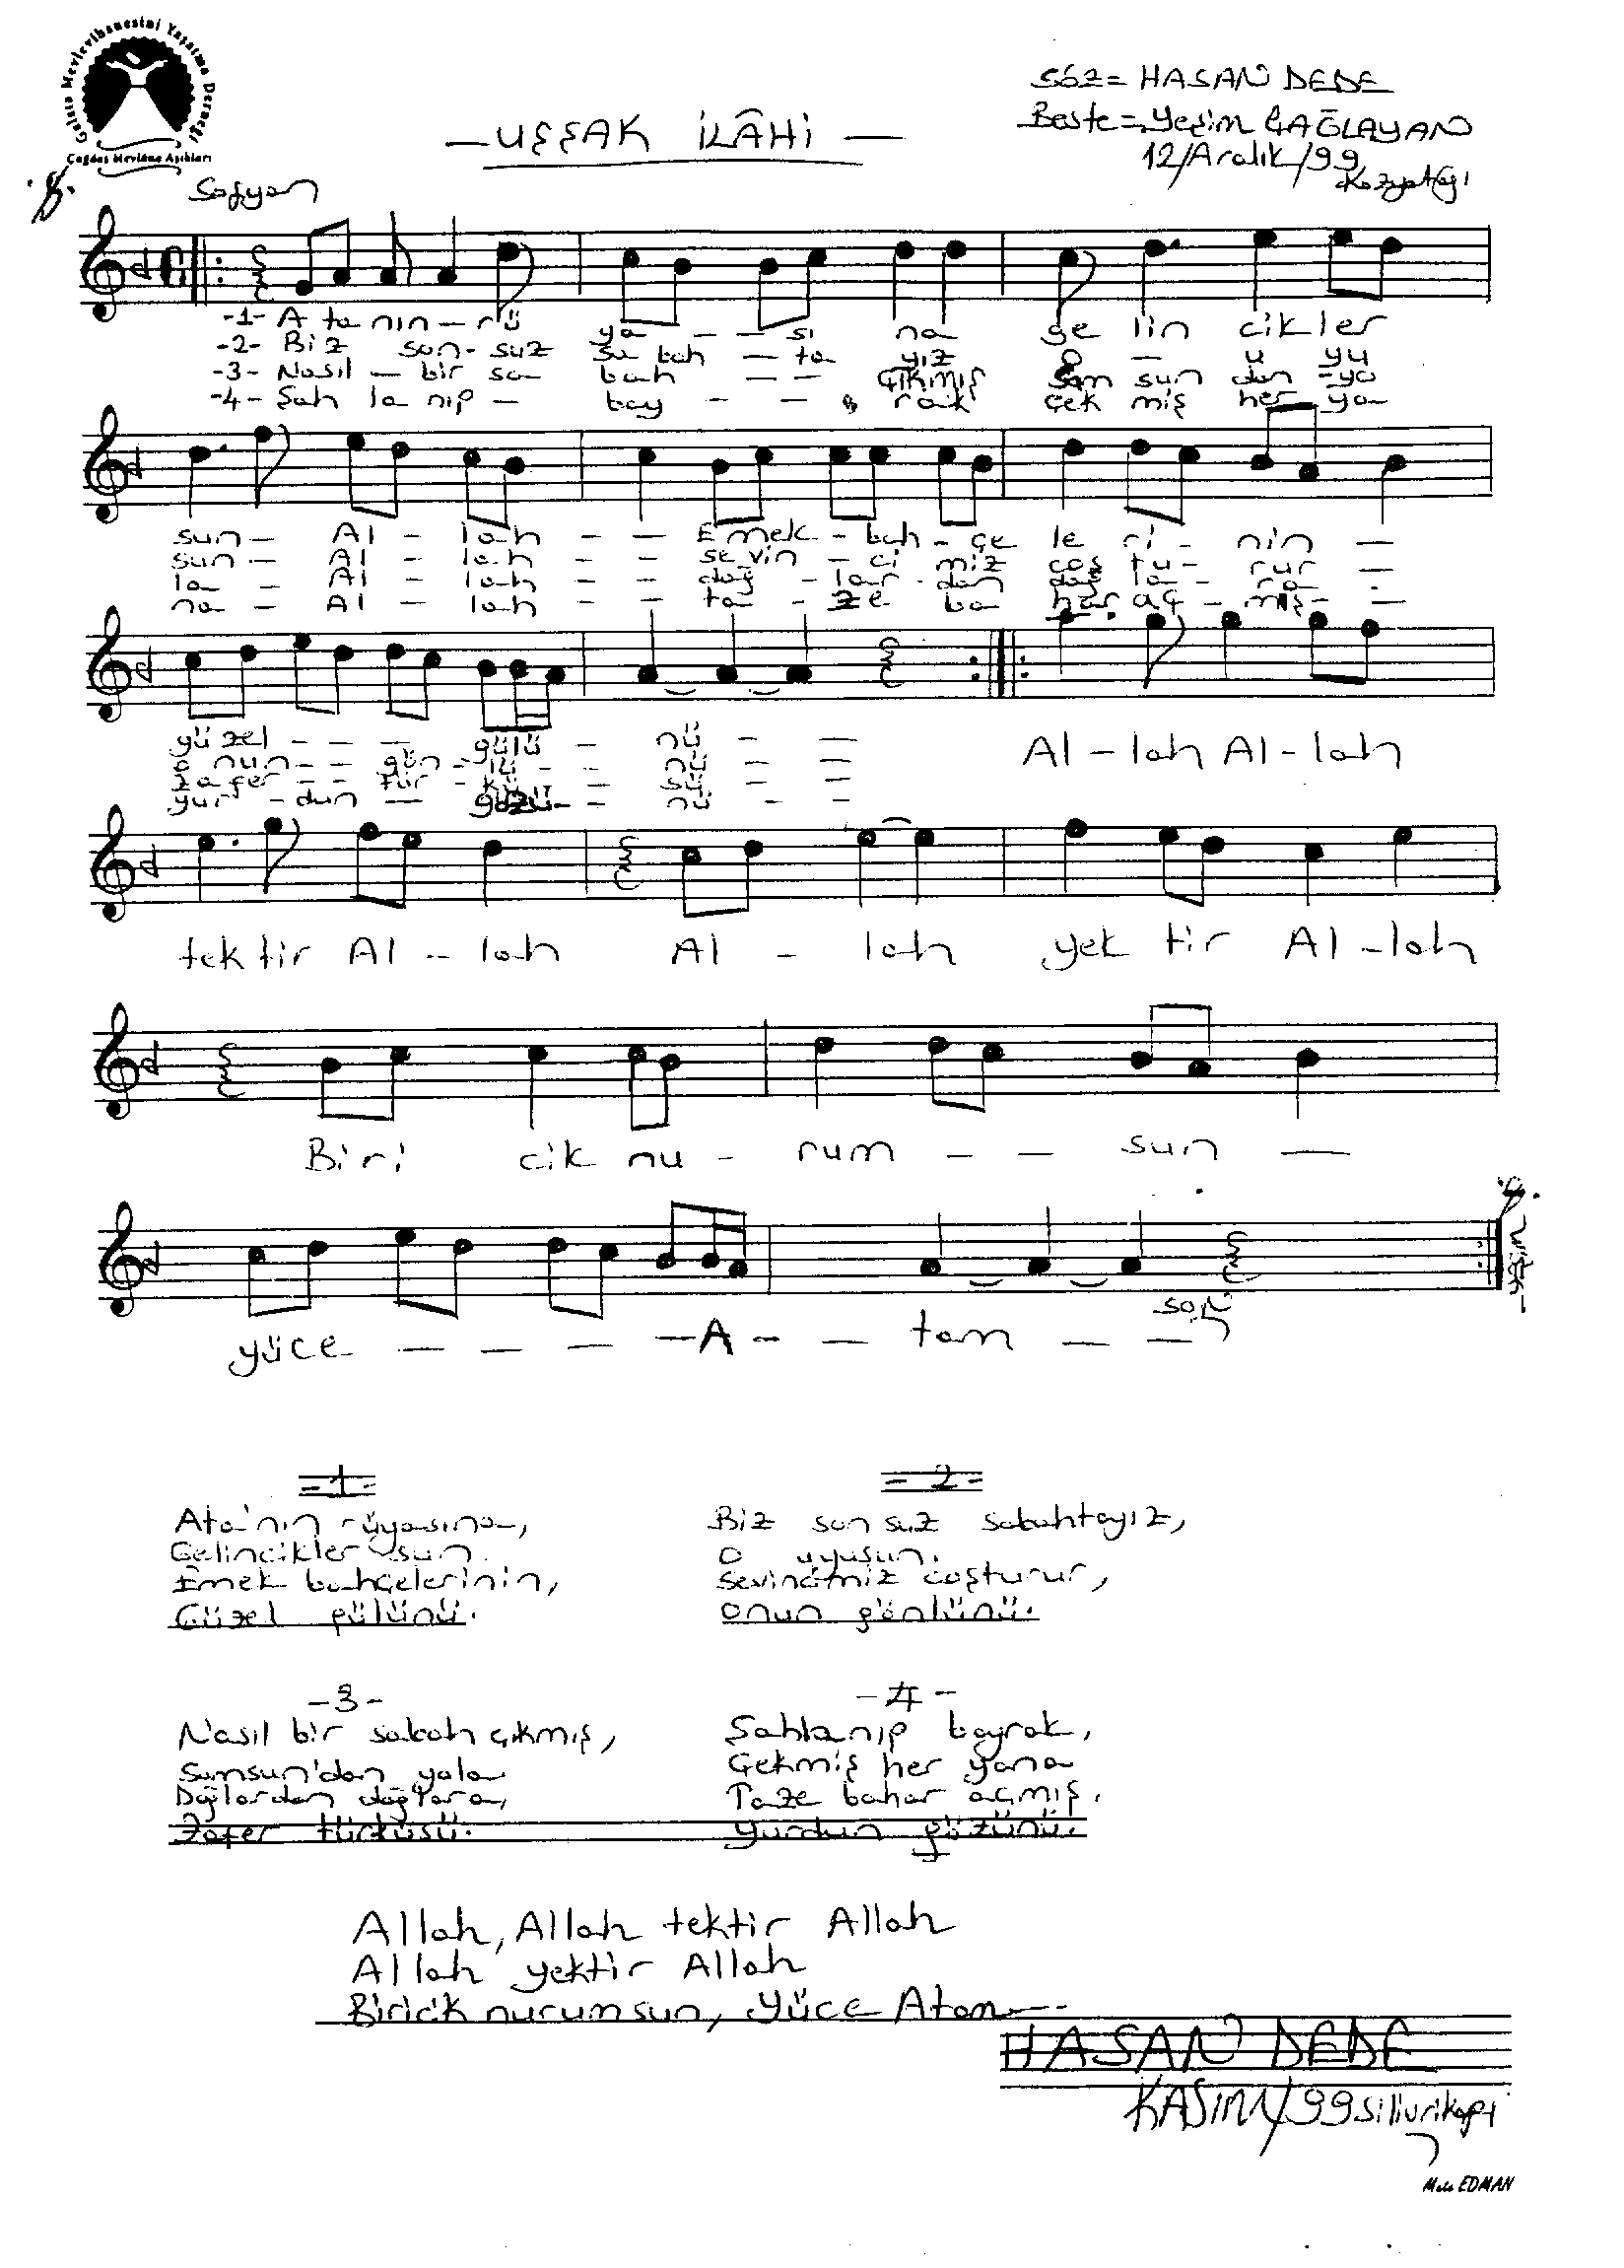 Galata Mevlevihanesini Yaşatma Derneği
Çağdaş Mevlâna Aşıkları
Söz= HASAN DEDE
Beste= Yeşim ÇAĞLAYAN
12/Aralık/99
Kozyatağı
— UŞŞAK İLÂHİ —
Sofyan
-1- A ta nın - rü ya - - sı na ge lin cik ler
-2- Biz son - suz sa bah - ta yız O - u yu
-3- Nasıl - bir sa bah - - çıkmış Sam sun dan - ya
-4- Şah la nıp - bay - - rak çek miş her ya
sun - Al - lah - - Emek - bah - çe le ri - nin -
sun - Al - lah - - sevin - ci miz coş tu - rur -
la - Al - lah - - dağ - lar - dan dağ la - ra -
na - Al - lah - - ta - ze ba har aç - mış -
güzel - - - gülü - nü - -
o nun - - gön - lü - nü - -
zafer - - tür - kü - sü - -
yur - dun - gözü - nü - -
Al - lah Al - lah
tek tir Al - lah Al - lah yek tir Al - lah
Biri cik nu - rum - - sun -
yüce - - - - A - - tam - -
son
-1-
Ata'nın rüyasına,
Gelincikler sun.
Emek bahçelerinin,
Güzel gülünü.
-2-
Biz sonsuz sabahtayız,
O uyusun.
Sevincimiz coşturur,
Onun gönlünü.
-3-
Nasıl bir sabah çıkmış,
Samsun'dan yola
Dağlardan dağlara,
Zafer türküsü.
-4-
Şahlanıp bayrak,
Çekmiş her yana
Taze bahar açmış,
Yurdun gözünü.
Allah, Allah tektir Allah
Allah yektir Allah
Biricik nurumsun, Yüce Atam---
HASAN DEDE
KASIM/99 Silivrikapı
EDMAN